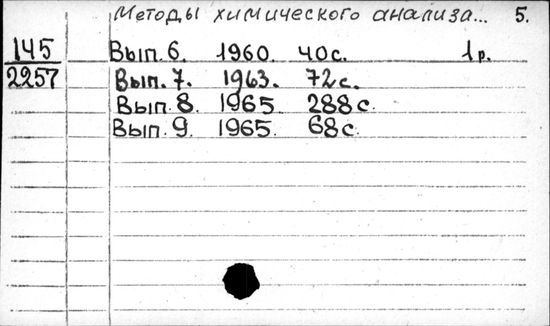 Методы химического анализа... 5.
145 Вып. 6. 1960. 40с. 1р.
2257 Вып. 7. 1963. 72с.
Вып. 8. 1965. 288с.
Вып. 9. 1965. 68с.